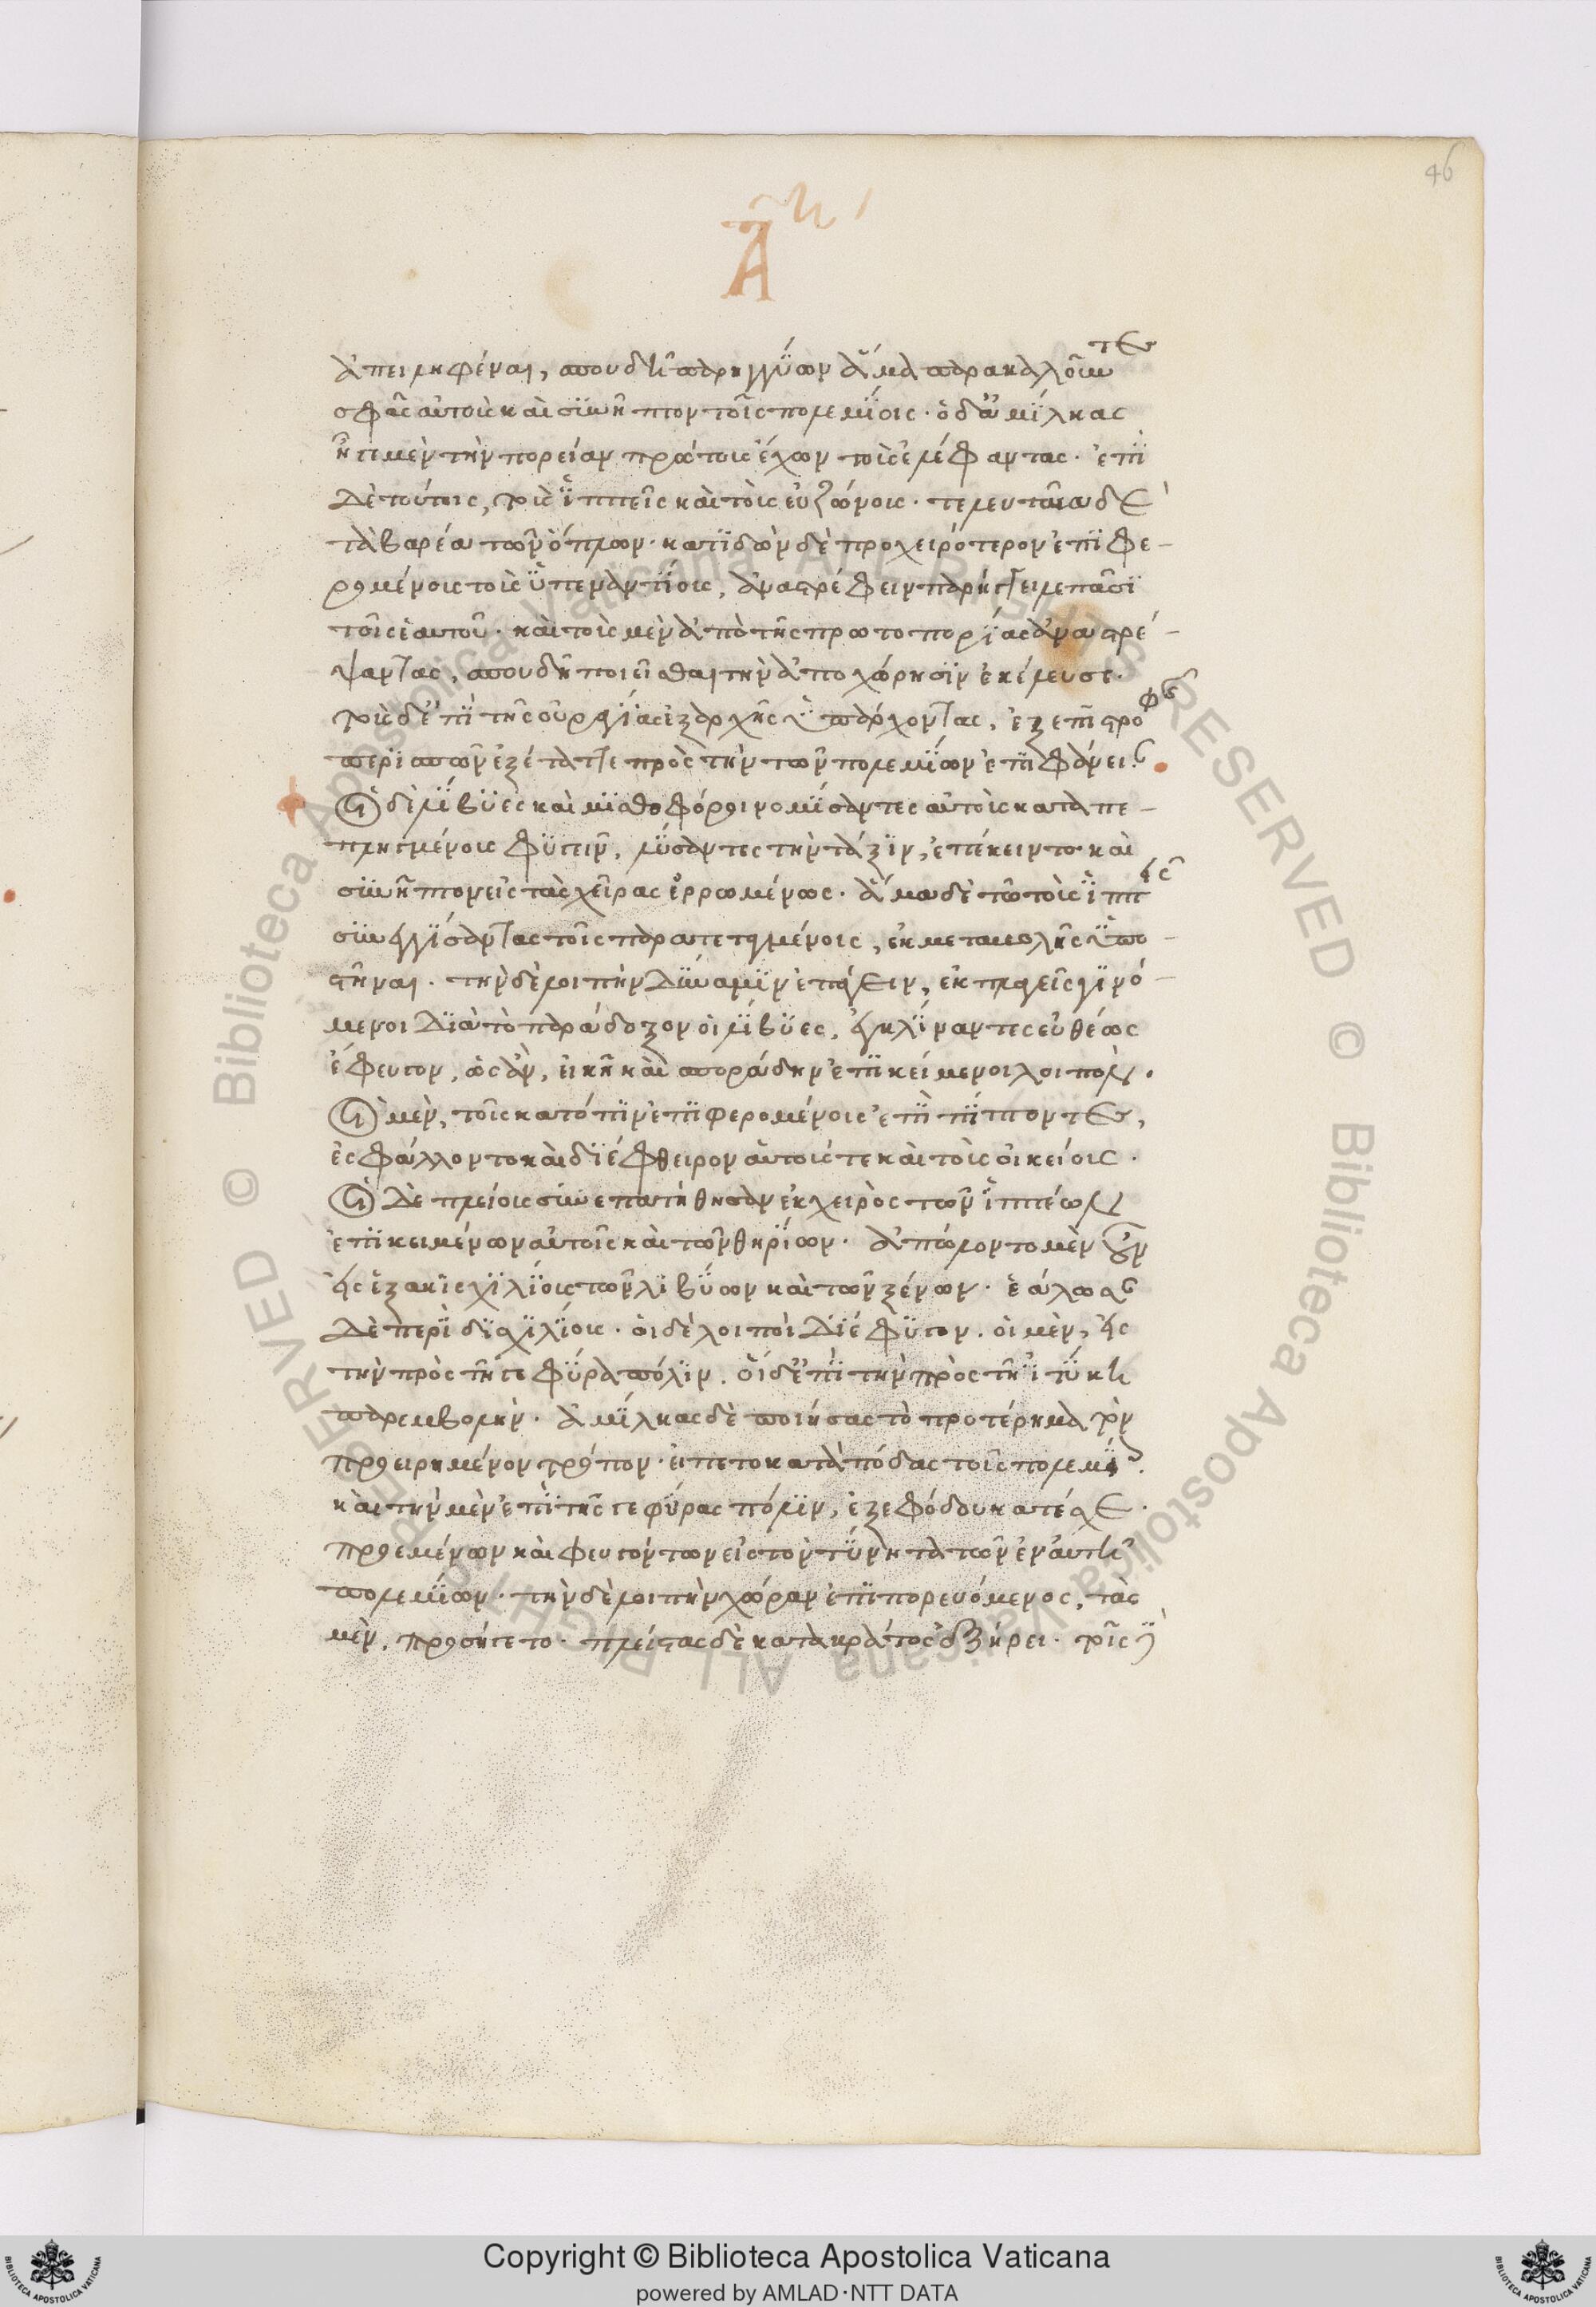 Αʹ
46
ἀπειληφέναι, σπουδῆ παρηγγύων ἅμα παρακαλοῦντες
σφᾶς αὐτοὺς καὶ συνῆπτον τοῖς πολεμίοις· ὁ δ' ἀμίλκας
ἦγε μὲν τὴν πορείαν πρώτους ἔχων τοὺς ἐλέφαντας· ἐπὶ
δὲ τούτοις, τοὺς ἱππεῖς καὶ τοὺς εὐζώνους· τελευταῖα δὲ
τὰ βαρέα τῶν ὅπλων· κατιδὼν δὲ προχειρότερον ἐπιφε-
ρομένους τοὺς ὑπεναντίους, ἀναστρέφειν παρήγγειλε πᾶσι
τοῖς ἑαυτοῦ· καὶ τοὺς μὲν ἀπὸ τῆς πρωτοπορίας ἀναστρέ-
ψαντας, σπουδῆ ποιεῖσθαι τὴν ἀποχώρησιν ἐκέλευσε·
τοὺς δ' ἐπὶ τῆς οὐραγίας ἐξαρχῆς ὑπάρχοντας, ἐξεπιστροφῆς
περισπῶν ἐξέταττε πρὸς τὴν τῶν πολεμίων ἐπιφάνειαν·
Οἱ δὲ λίβυες καὶ μισθοφόροι νομίσαντες αὐτοὺς καταπε-
πληγμένους φυγεῖν, λύσαντες τὴν τάξιν, ἐπέκειντο καὶ
συνῆπτον εἰς τὰς χεῖρας ἐρρωμένως· ἅμα δὲ τῶ τοὺς ἱππεῖς
συνεγγίσαντας τοῖς παρατεταγμένοις, ἐκ μεταβολῆς ὑπο-
στῆναι· τὴν δὲ λοιπὴν δύναμιν ἐπάγειν, ἐκπλαγεῖς γινό-
μενοι διὰ τὸ παράδοξον οἱ λίβυες, ἐγκλίναντες εὐθέως
ἔφευγον, ὡς ἂν, εἰκῆ καὶ σποράδην ἐπικείμενοι λοιπὸν·
Οἱ μὲν, τοῖς κατόπιν ἐπιφερομένοις ἐπιπίπτοντες,
ἐσφάλλοντο καὶ διέφθειρον αὑτούς τε καὶ τοὺς οἰκείους·
Οἱ δὲ πλείους συνεπατήθησαν ἐκ χειρὸς τῶν ἱππέων
ἐπικειμένων αὐτοῖς καὶ τῶν θηρίων· ἀπώλοντο μὲν οὖν
εἰς ἑξακισχιλίους τῶν λιβύων καὶ τῶν ξένων· ἑάλωσαν
δὲ περὶ δισχιλίους· οἱ δὲ λοιποὶ διέφυγον· οἱ μὲν, εἰς
τὴν πρὸς τῆ γεφύρα πόλιν· οἱ δ' ἐπὶ τὴν πρὸς τῆ ἰτύκη
παρεμβολήν· ἀμίλκας δὲ ποιήσας τὸ προτέρημα τὸν
προειρημένον τρόπον· εἵπετο κατὰ πόδας τοῖς πολεμίοις·
καὶ τὴν μὲν ἐπὶ τῆς γεφύρας πόλιν, ἐξεφόδου κατέσχε·
προεμένων καὶ φευγόντων εἰς τὸν τύνητα τῶν ἐν αὐτῆ
πολεμίων· τὴν δὲ λοιπὴν χώραν ἐπιπορευόμενος, τὰς
μὲν, προσήγετο· πλείστας δὲ κατακράτος ἐξήρει· τοῖς δὲ